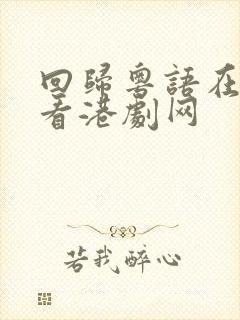 回歸粵語在
看港劇网
若我醉心